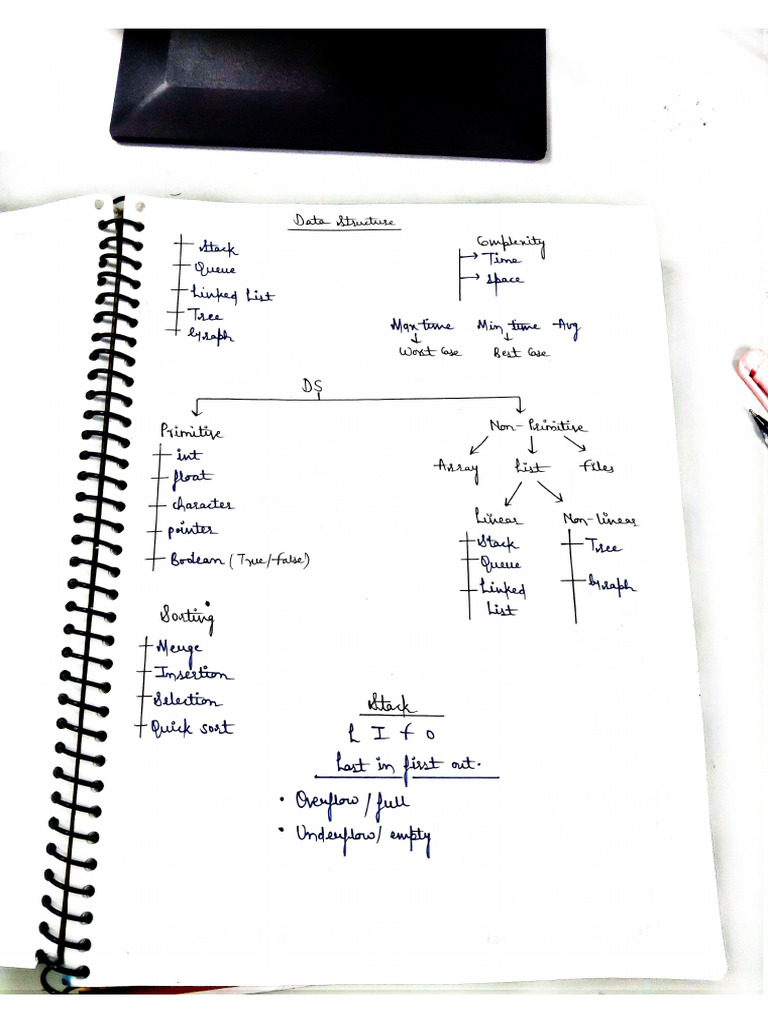 Data Structure
Stack
Queue
Linked List
Tree
Graph
Complexity
Time
Space
Max time Min time Avg
Worst Case Best Case
DS
Primitive
int
float
character
pointer
Boolean (True/False)
Non-Primitive
Array List Files
Linear
Stack
Queue
Linked
List
Non-linear
Tree
Graph
Sorting
Merge
Insertion
Selection
Quick sort
Stack
L I F O
Last in first out.
• Overflow/full
• Underflow/empty